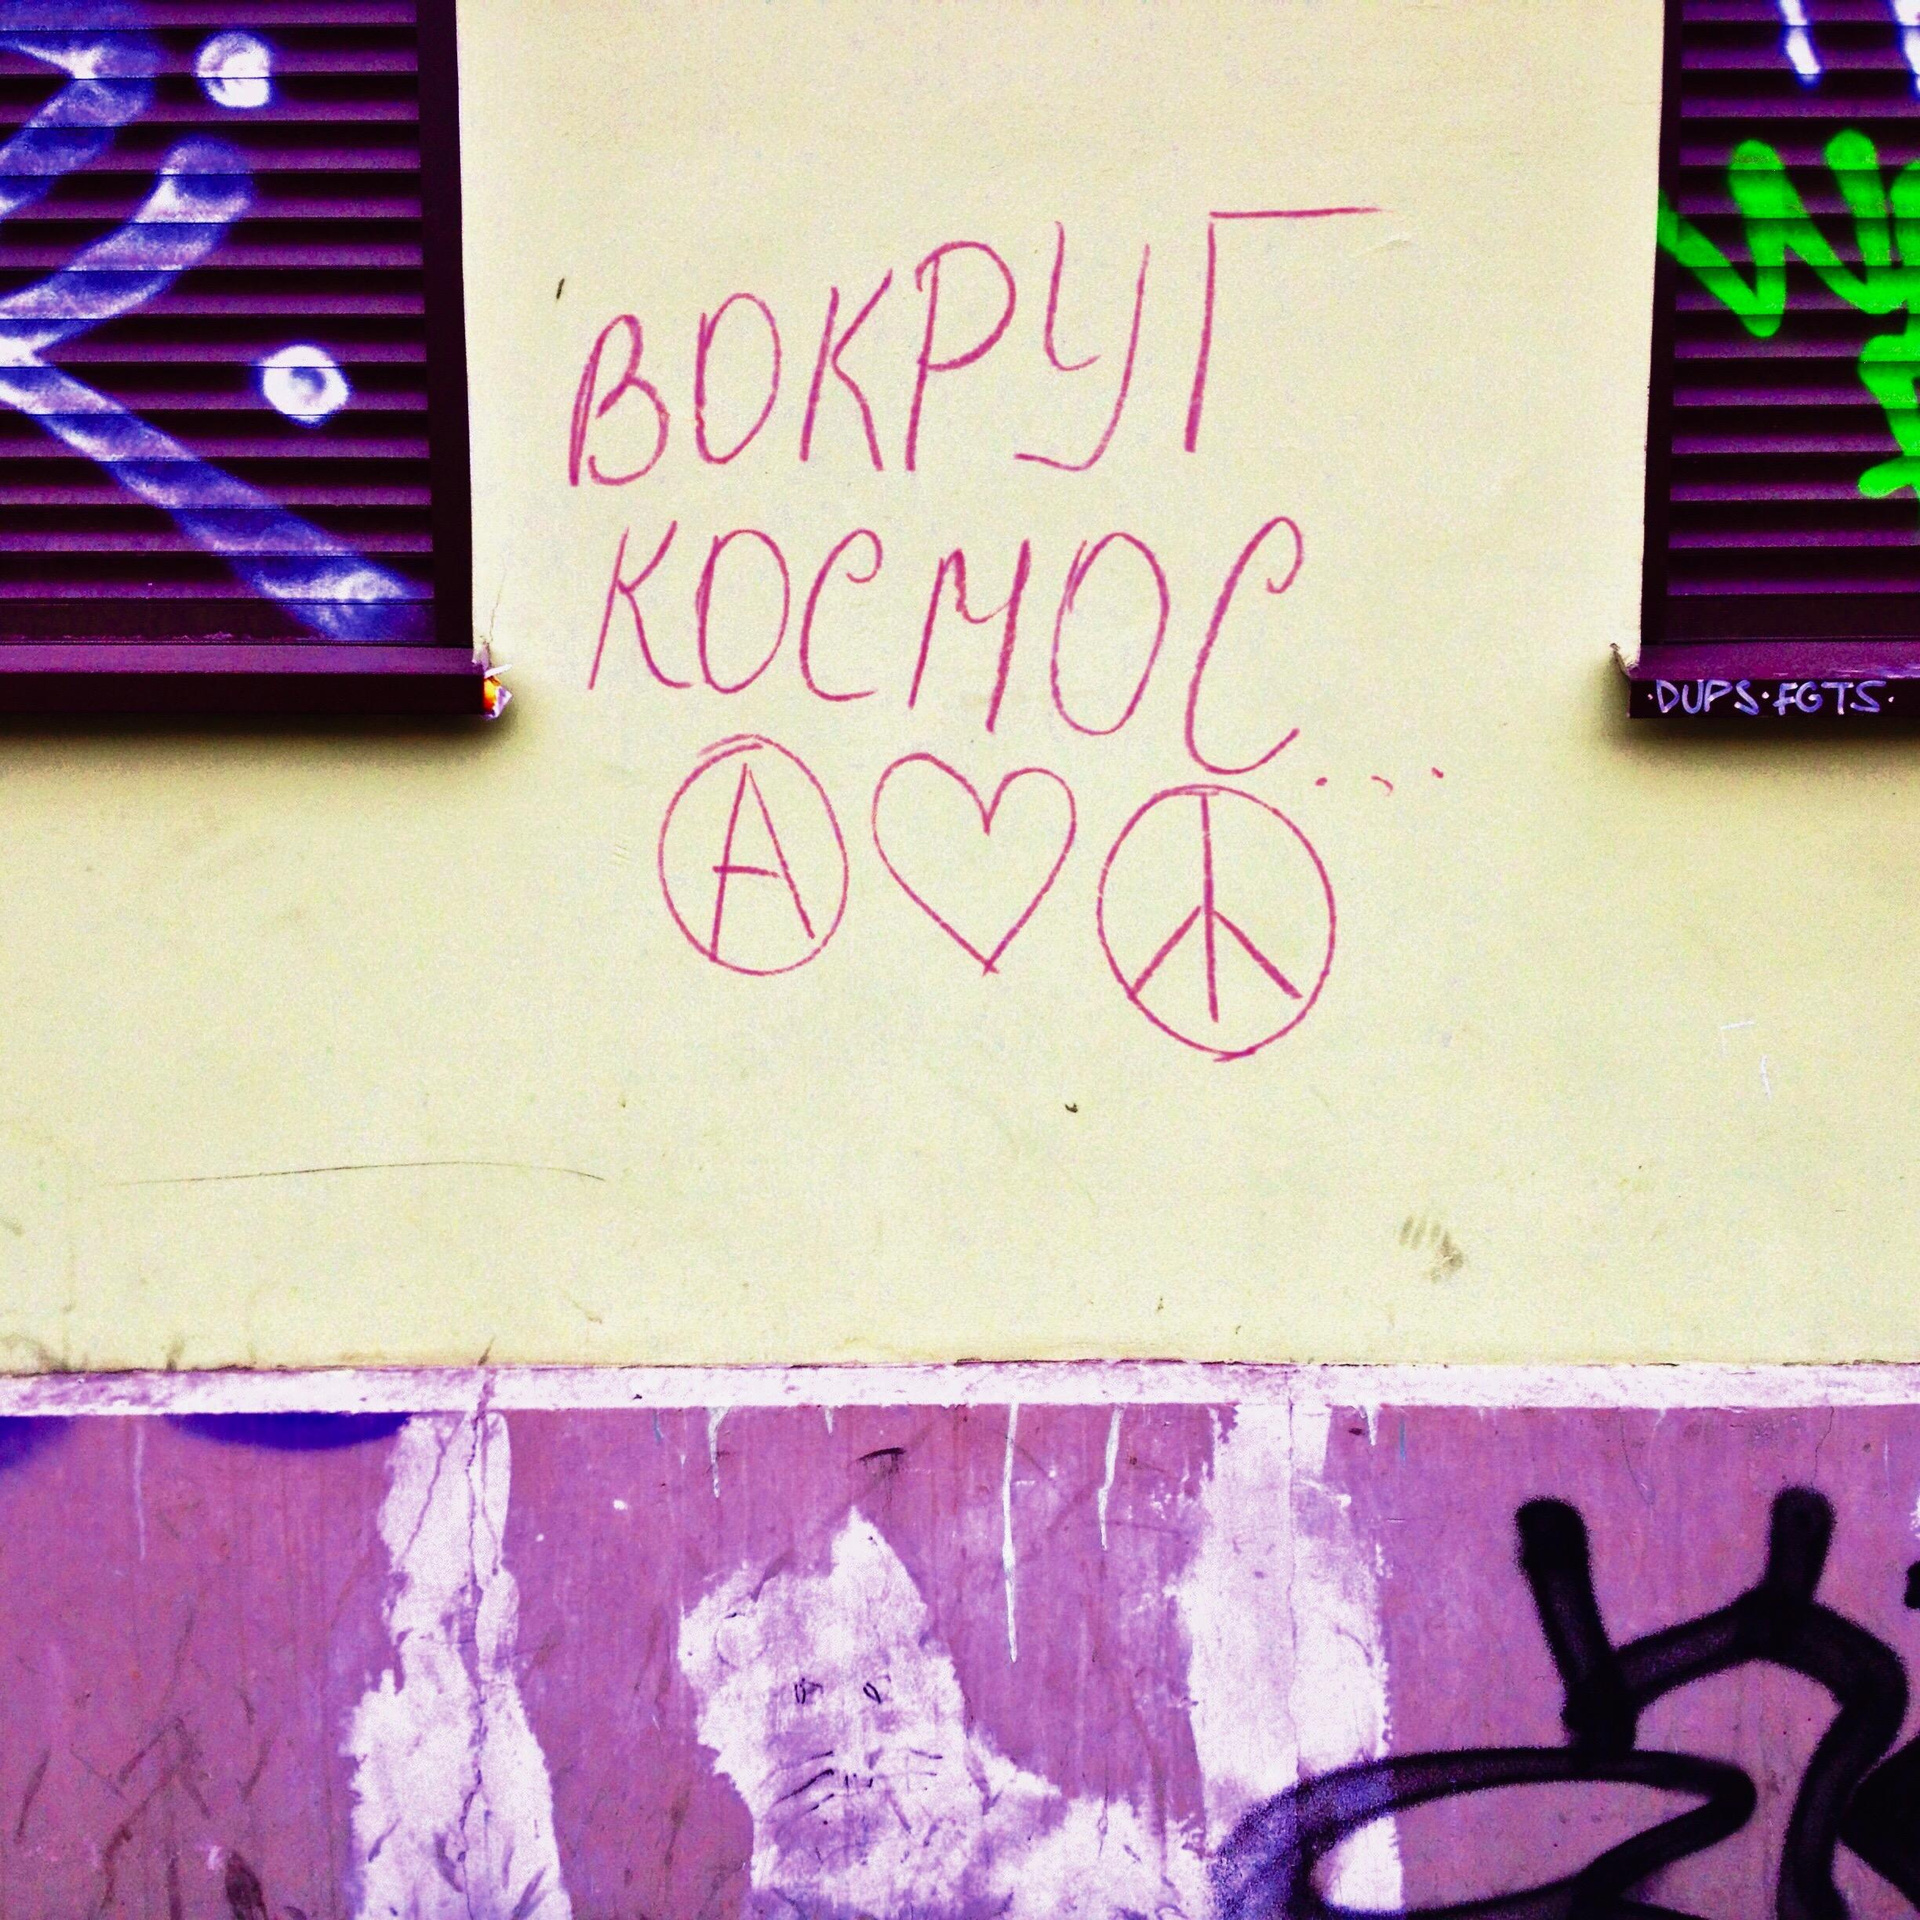 ВОКРУГ
КОСМОС...
·DUPS·FGTS·